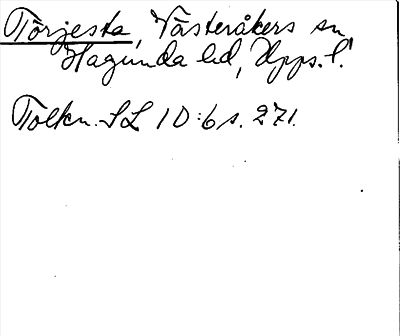 Törjesta, Västeråkers sn
Hagunda hd, Upps. l.
Tolkn. SL 10:6 s. 271.